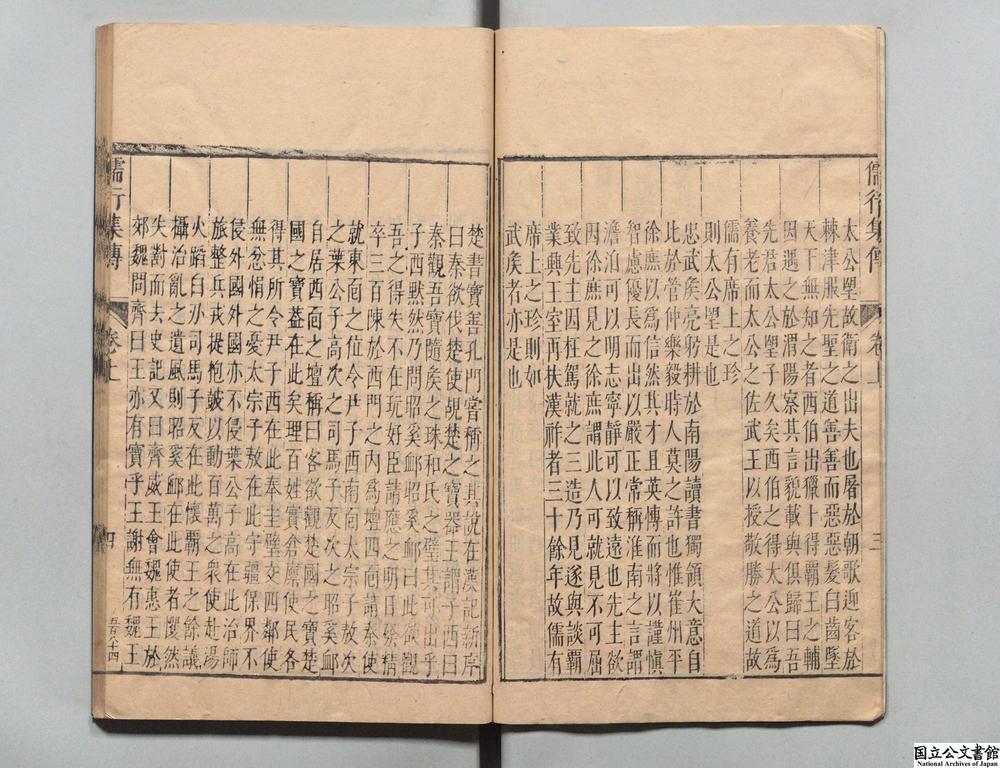 儒行集傳
卷上
三
太公望故衛之出夫也屠於朝歌迎客於
棘津服先聖之道善善而惡惡髮白齒墜
天下無知之者西伯出獵卜得霸王之輔
因遇之於渭陽察其言貌載與俱歸曰吾
先君太公望子久矣西伯之得太公以為
養老而太公之佐武王以授敬勝之道故
儒有席上之珍
則太公望是也
忠武矦亮躬耕於南陽讀書獨領大意自
比於管仲樂毅時人莫之許也惟崔州平
徐庶以爲信然其才且英傳而將以謹愼
智慮優長而出以嚴正常稱淮南之言謂
澹泊可以明志寧靜可以致遠也先主欲
因徐庶見之徐庶謂此人可就見不可屈
致先主因枉駕就之三造乃見遂與談霸
業興王室再扶漢祥者三十餘年故儒有
席上之珍則如
武矦者亦是也
楚書寶善孔門嘗稱之其說在漢記新序
曰秦欲伐楚使覘楚之寶器王謂子西曰
秦觀吾寶隨矦之珠和氏之璧其可出乎
子西默然乃問昭奚卹昭奚卹曰此欲觀
吾之得失不在玩好臣請應之明日發精
卒三百陳於西門之內爲壇四面請奉使
就東面之位令尹子西南面太宗子敖次
之葉公子高次之司馬子反次之昭奚卹
自居西面之壇稱曰客欲觀楚國之寶楚
國之寶葢在此矣理百姓實倉廩使民各
得其所令尹子西在此奉圭璧交四鄰使
無忿悁之憂太宗子敖在此守疆保界不
侵外國外國亦不侵葉公子高在此治師
旅整兵戎提枹皷以動百萬之衆使赴湯
火蹈白刃司馬子反在此懷霸王之餘議
攝治亂之遺風則昭奚卹在此使者懼然
失對而去史記又曰齊威王會魏惠王於
郊魏問齊曰王亦有寶乎王謝無有魏王
儒行集傳
卷上
四
吾六十四
国立公文書館
National Archives of Japan